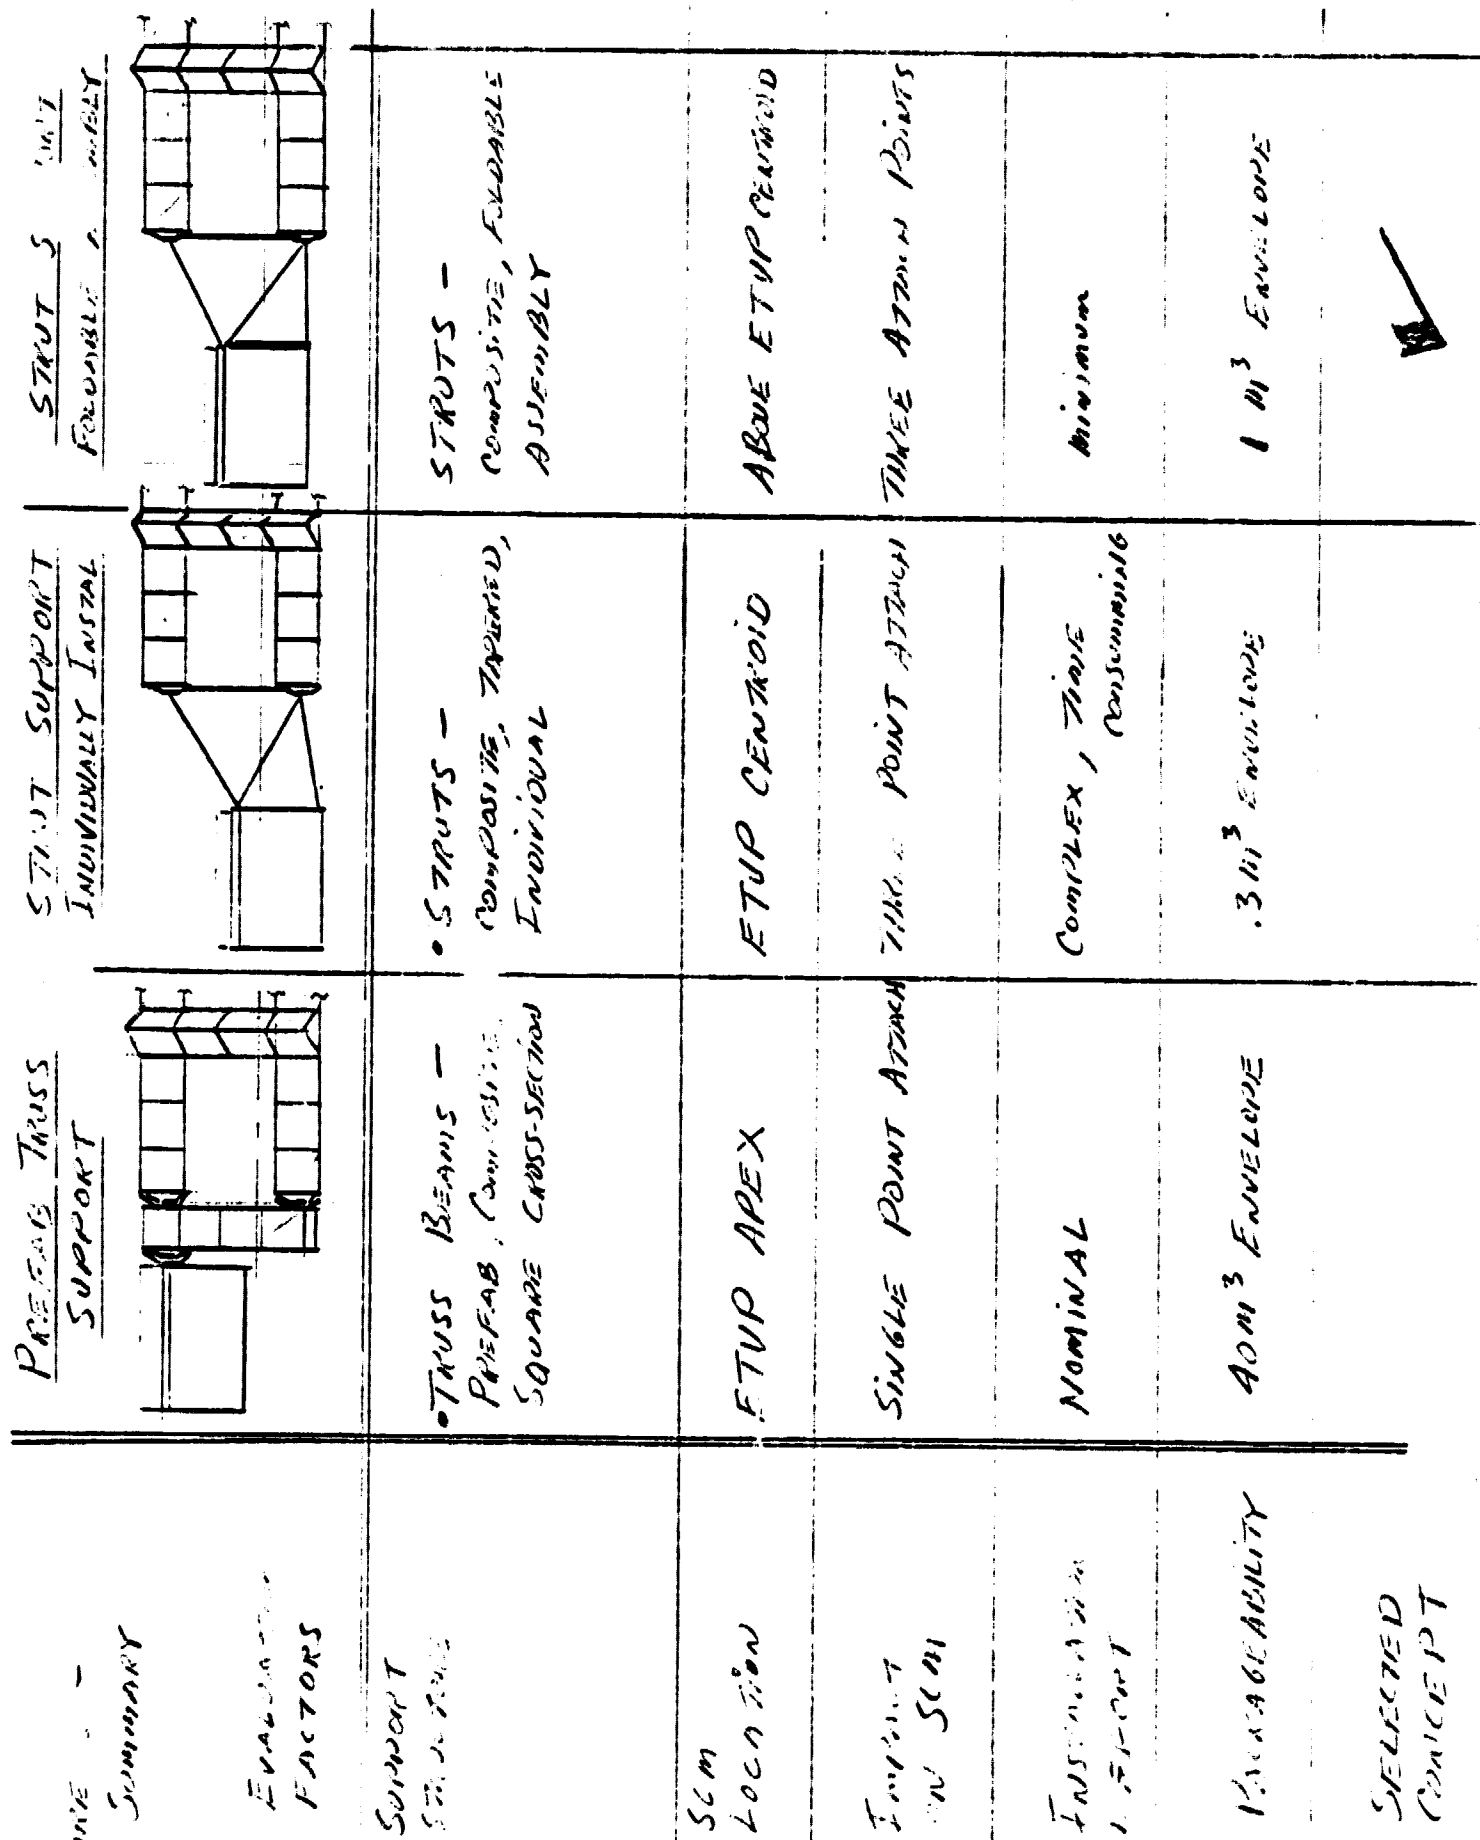 SUMMARY
PREFAB TRUSS
SUPPORT
STRUT SUPPORT
INDIVIDUALLY INSTAL
STRUT S
FOLDABLE
FACTORS
SUPPORT
• TRUSS BEAMS –
PREFAB, COMPOSITE,
SQUARE CROSS-SECTION
• STRUTS –
COMPOSITE, TAPERED,
INDIVIDUAL
STRUTS –
COMPOSITE, FOLDABLE
ASSEMBLY
SCM
LOCATION
ETVP APEX
ETVP CENTROID
ABOVE ETVP CENTROID
IMPACT
ON SCM
SINGLE POINT ATTACH
THREE POINT ATTACH
THREE ATTACH POINTS
NOMINAL
COMPLEX, TIME
CONSUMMING
MINIMUM
PACKAGEABILITY
40M³ ENVELOPE
.3M³ ENVELOPE
1 M³ ENVELOPE
SELECTED
CONCEPT